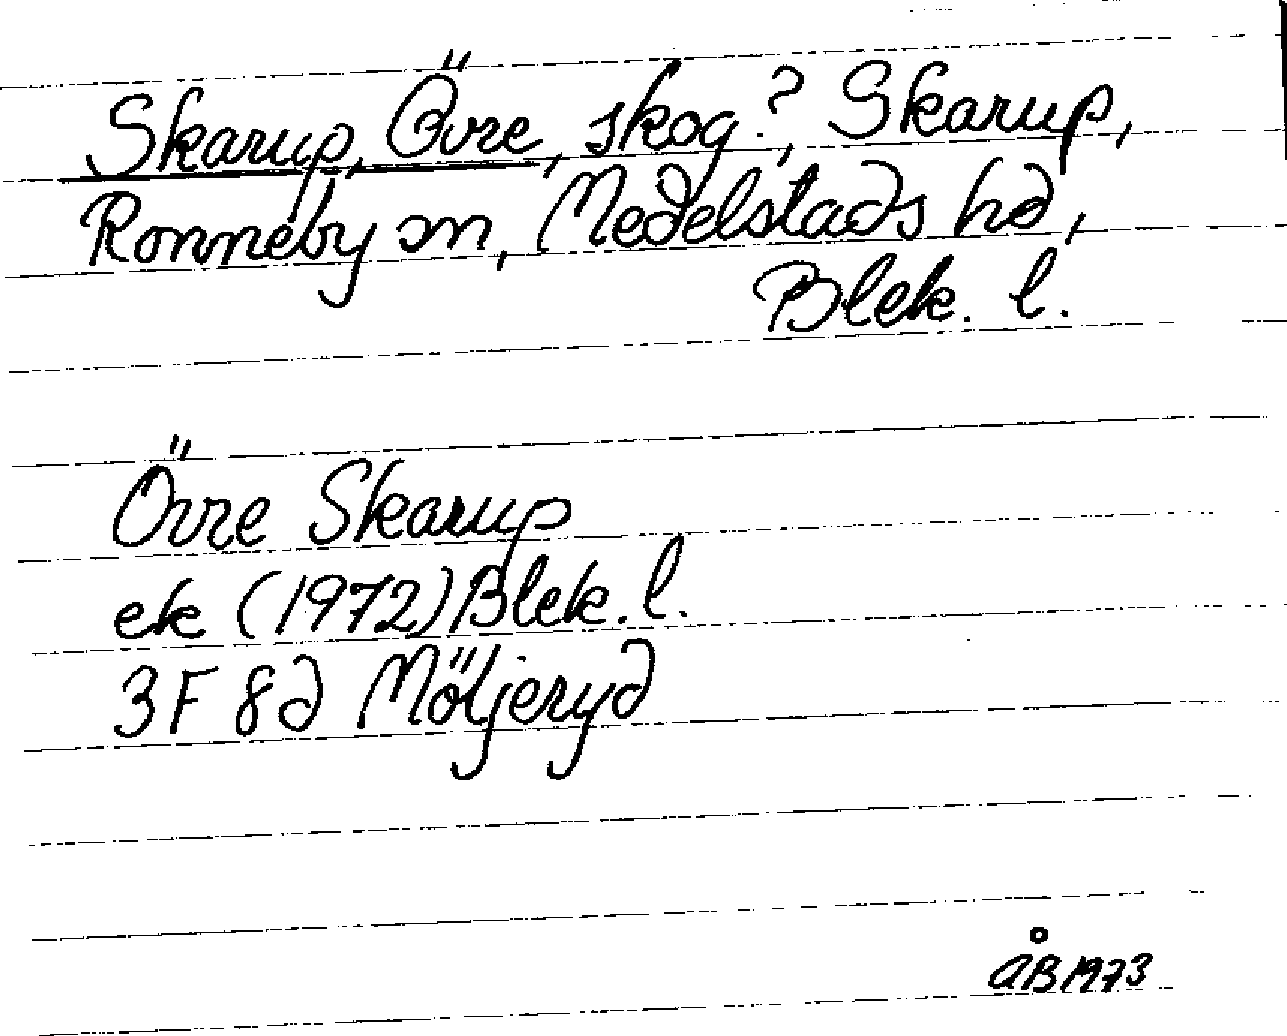 Skarup, Övre, skog?, Skarup,
Ronneby sn, Medelstads hd,
Blek. l.
Övre Skarup
ek (1972) Blek. l.
3F 8d Möljeryd
ÅB 1973